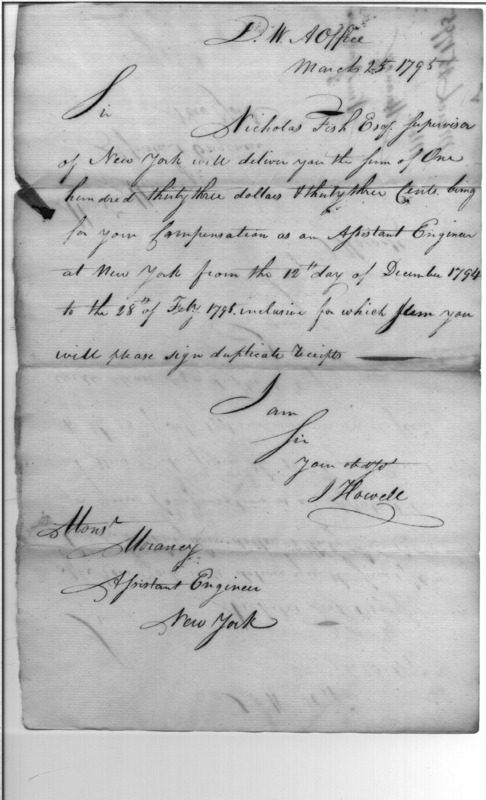 D. W. A Office
March 25. 1795
Sir
Nicholas Fish Esqr. Supervisor
of New York will deliver you the sum of One
hundred thirty three dollars & thirty three Cents. being
for your Compensation as an Assistant Engineer
at New York from the 12th day of December 1794
to the 28th of Feby. 1795. inclusive for which sum you
will please sign duplicate receipts
I am
Sir
your
J Howell
Monsr.
Assistant Engineer
New York